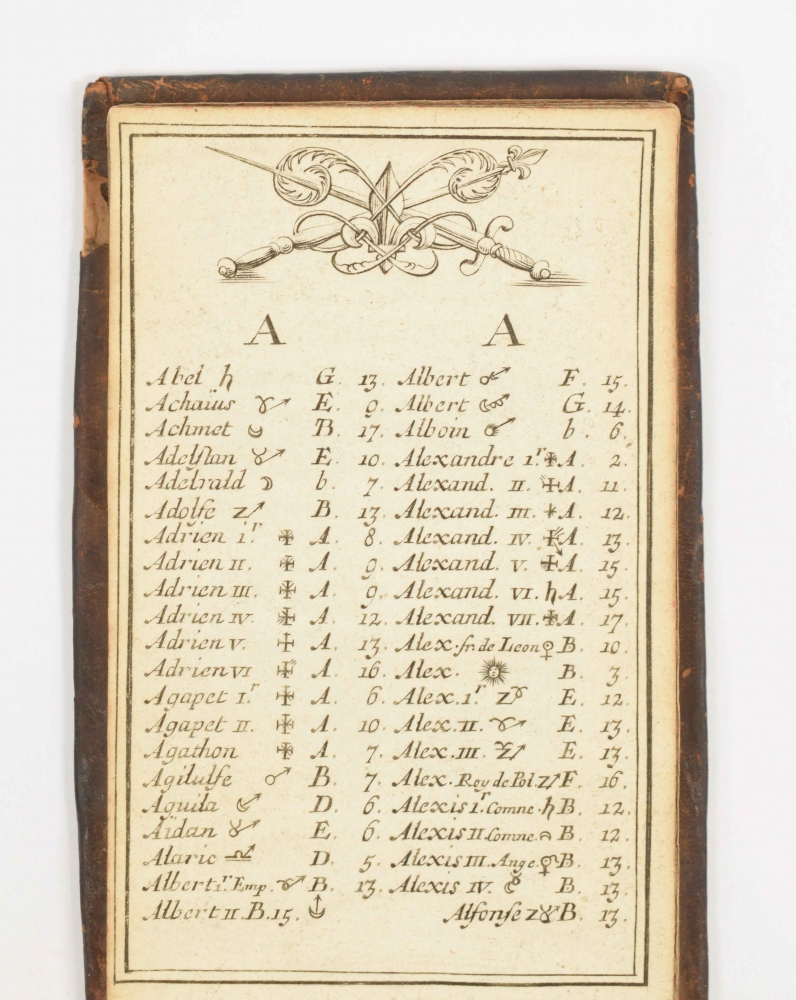 A
Abel ♄ G. 13.
Achaïus E. 9.
Achmet B. 17.
Adelstan E. 10.
Adelvald ☽ b. 7.
Adolfe B. 13.
Adrien 1.r A. 8.
Adrien II. A. 9.
Adrien III. A. 9.
Adrien IV. A. 12.
Adrien V. A. 13.
Adrien VI A. 16.
Agapet I.r A. 6.
Agapet II. A. 10.
Agathon A. 7.
Agilulfe ♂ B. 7.
Aquila D. 6.
Aïdan E. 6.
Alaric D. 5.
Albert 1.r Emp. B. 13.
Albert II. B. 15.
A
Albert F. 15.
Albert G. 14.
Alboin b. 6.
Alexandre 1.r A. 2.
Alexand. II. A. 11.
Alexand. III. A. 12.
Alexand. IV. A. 13.
Alexand. V. A. 15.
Alexand. VI. ♄ A. 15.
Alexand. VII. A. 17.
Alex. fr. de Leon ♀ B. 10.
Alex. B. 3.
Alex. 1.r E. 12.
Alex. II. E. 13.
Alex. III. E. 13.
Alex. Roy de Pol. F. 16.
Alexis 1.r Comne. ♄ B. 12.
Alexis II Comne. B. 12.
Alexis III. Ange. B. 13.
Alexis IV. B. 13.
Alfonse B. 13.